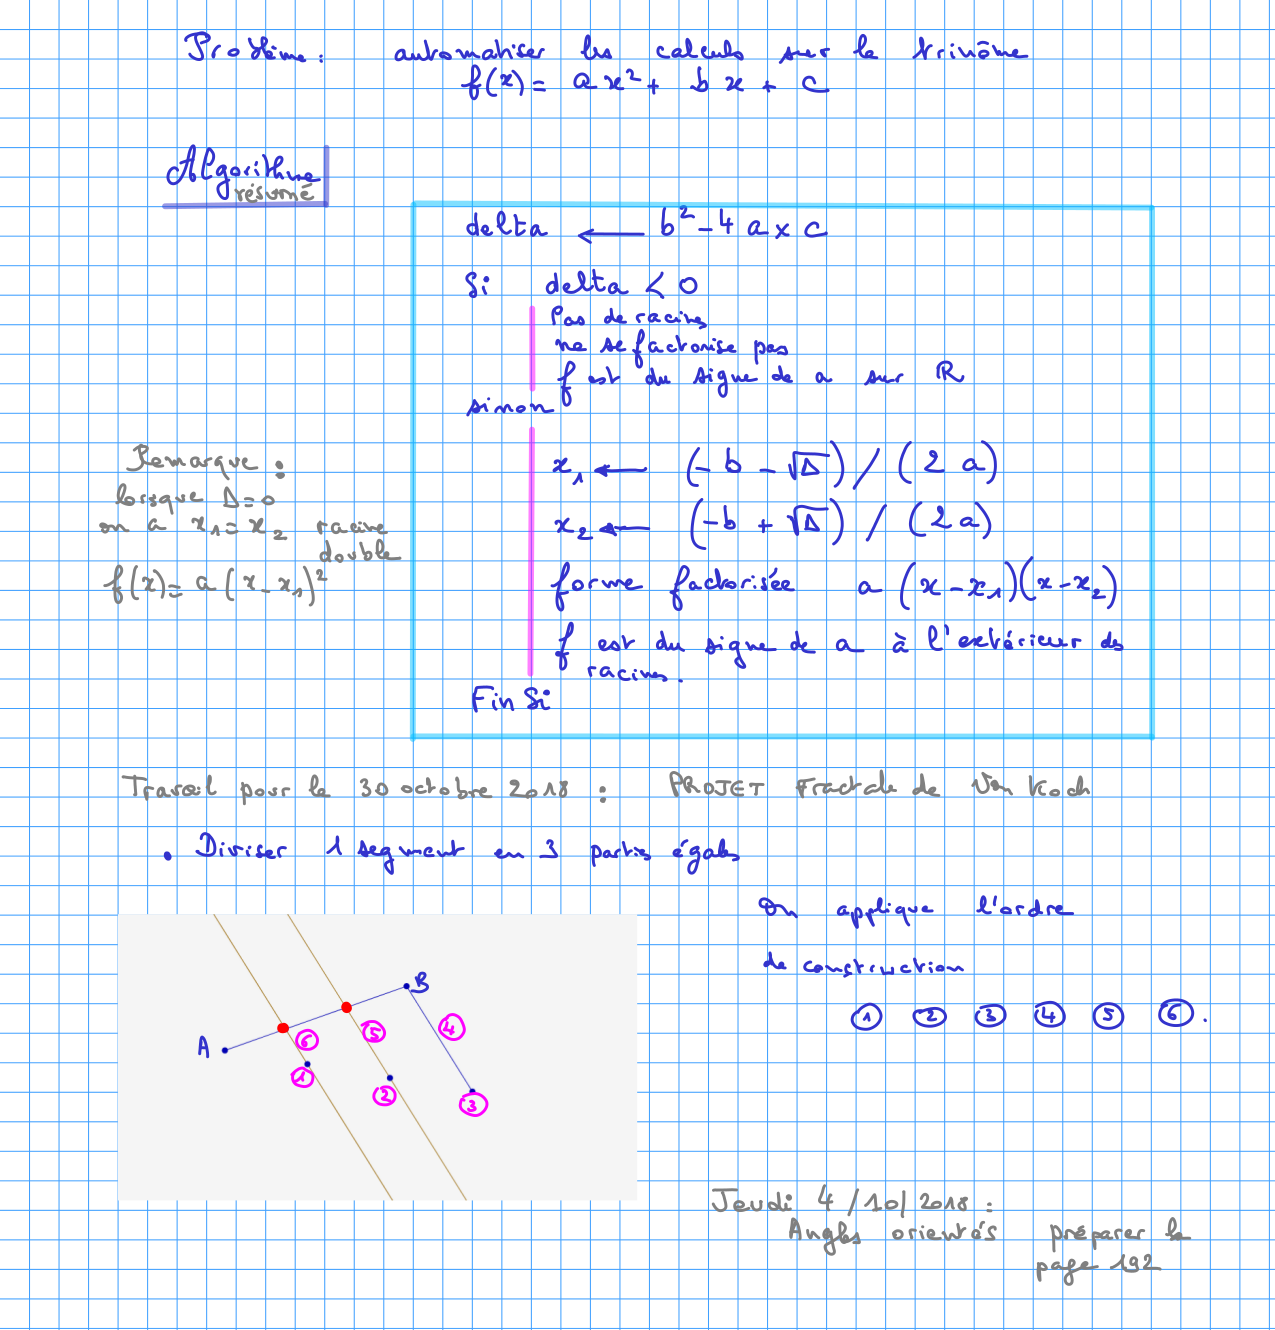 Problème : automatiser les calculs sur le trinôme
f(x) = a x² + b x + c
Algorithme
résumé
delta ← b² - 4 a x c
Si delta < 0
Pas de racines
ne se factorise pas
f est du signe de a sur ℝ
sinon
Remarque :
lorsque Δ = 0
on a x₁ = x₂ racine
double
f(x) = a (x - x₁)²
x₁ ← (-b - √Δ) / (2 a)
x₂ ← (-b + √Δ) / (2 a)
forme factorisée a (x - x₁)(x - x₂)
f est du signe de a à l'extérieur des
racines.
Fin Si
Travail pour le 30 octobre 2018 : PROJET Fractale de Von Koch
. Diviser 1 segment en 3 parties égales
On applique l'ordre
de construction
① ② ③ ④ ⑤ ⑥ .
B
A
⑥
⑤
④
①
②
③
Jeudi 4/10/2018 :
Angles orientés préparer la
page 192